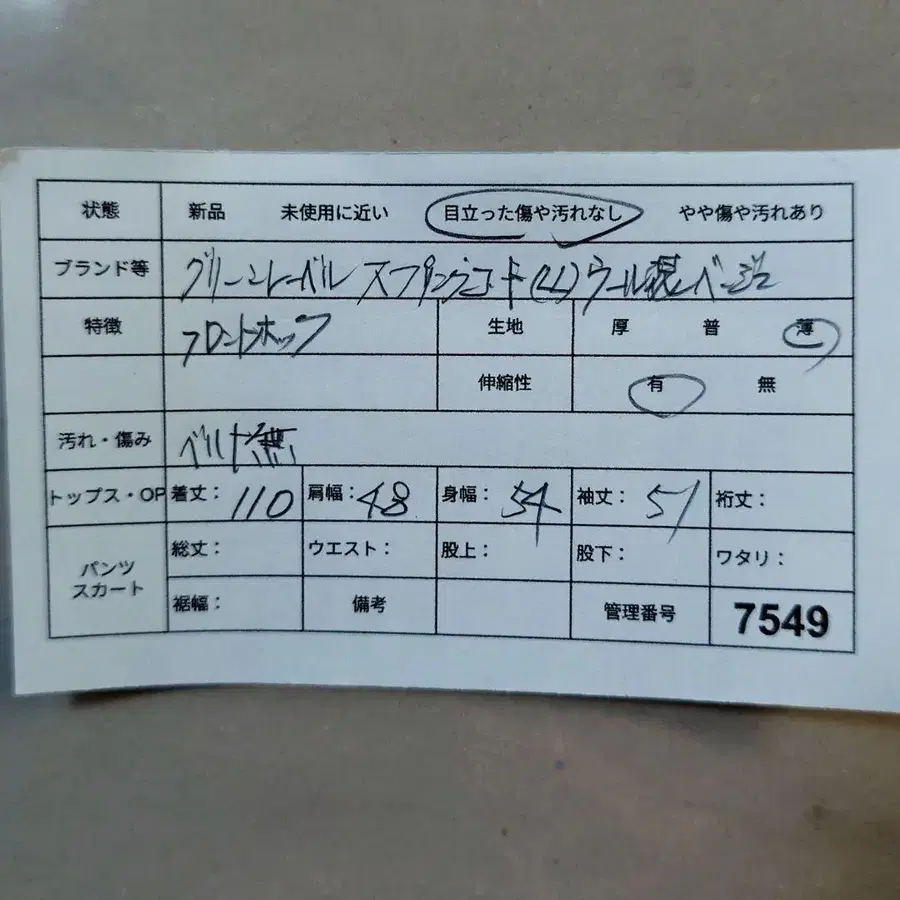 状態 新品 未使用に近い 目立った傷や汚れなし やや傷や汚れあり
ブランド等 グリーンレーベル スプリングコート(LL)ウール混 ベージュ
特徴 フロントホック 生地 厚 普 薄
伸縮性 有 無
汚れ・傷み ベルト無
トップス・OP 着丈: 110 肩幅: 48 身幅: 54 袖丈: 51 裄丈:
パンツ スカート 総丈: ウエスト: 股上: 股下: ワタリ:
裾幅: 備考 管理番号 7549